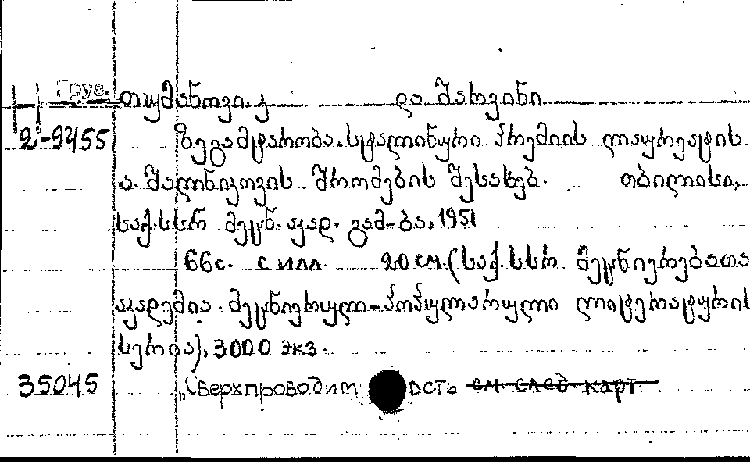 Груз.
თუმანოვი კ და შარვინი
2-9455 ზეგამტარობა. სტალინური პრემიის ლაურეატის
ა. შალნიკოვის შრომების შესახებ. თბილისი,
საქ. სსრ მეცნ. აკად. გამ-ბა, 1951
66с. с илл. 20 см. (საქ. სსრ მეცნიერებათა
აკადემია. მეცნიერულ-პოპულარული ლიტერატურის
სერია), 3000 экз.
35045 Сверхпроводим ость см. след. карт